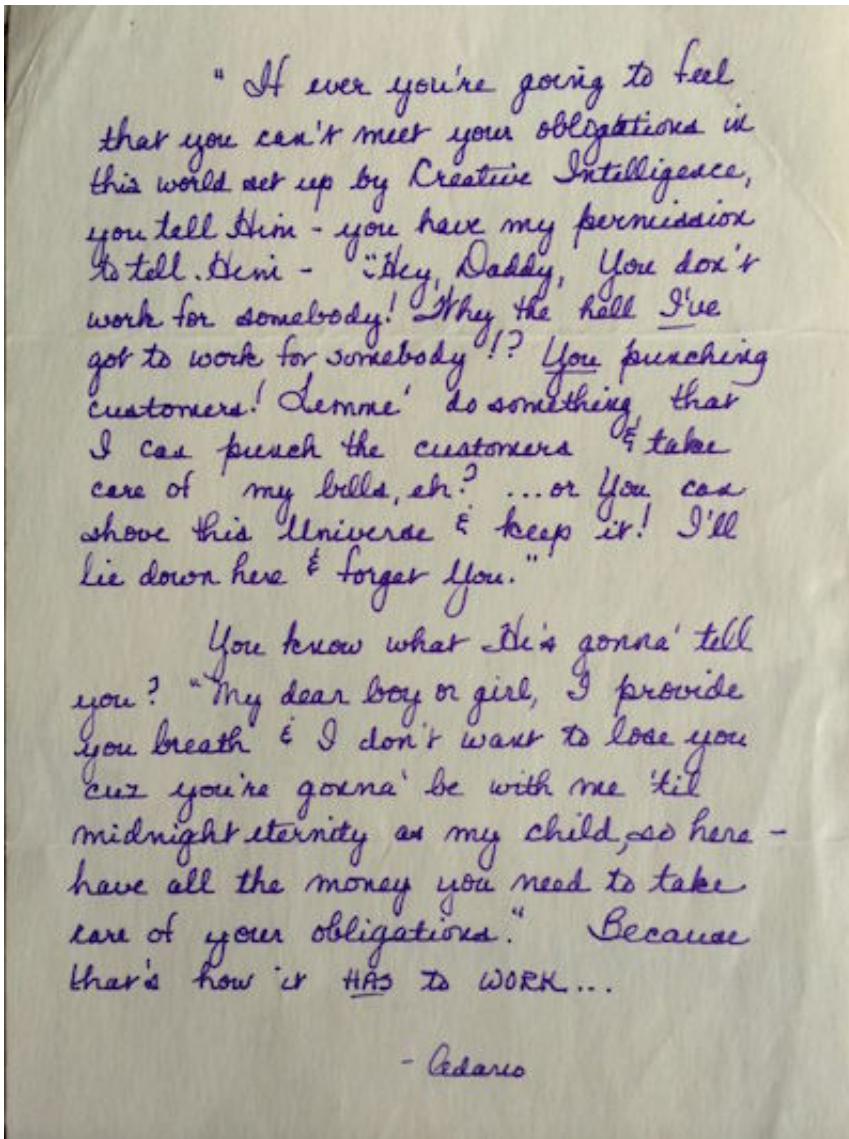 " If ever you're going to feel
that you can't meet your obligations in
this world set up by Creative Intelligence,
you tell Him - you have my permission
to tell Him - "Hey, Daddy, You don't
work for somebody! Why the hell I've
got to work for somebody!? You punching
customers! Lemme' do something that
I can punch the customers & take
care of my bills, eh? ...or You can
shove this Universe & keep it! I'll
lie down here & forget You."
You know what He's gonna' tell
you? "My dear boy or girl, I provide
you breath & I don't want to lose you
cuz you're gonna' be with me 'til
midnight eternity as my child, so here -
have all the money you need to take
care of your obligations." Because
that's how it HAS TO WORK...